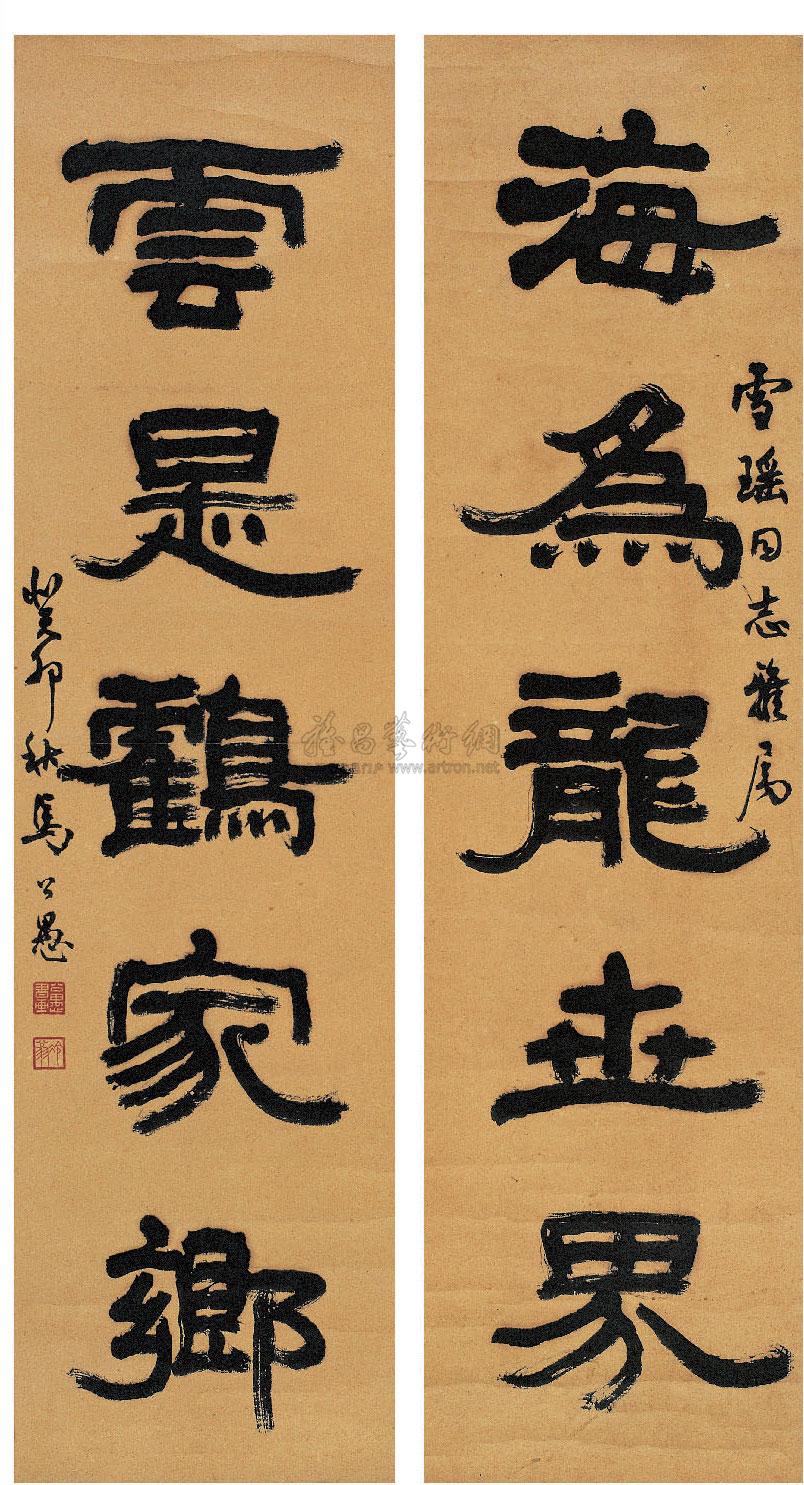 雪瑶同志雅属
海為龍世界
雲是鶴家鄉
癸卯秋馬公愚
雅昌藝術網
www.artron.net